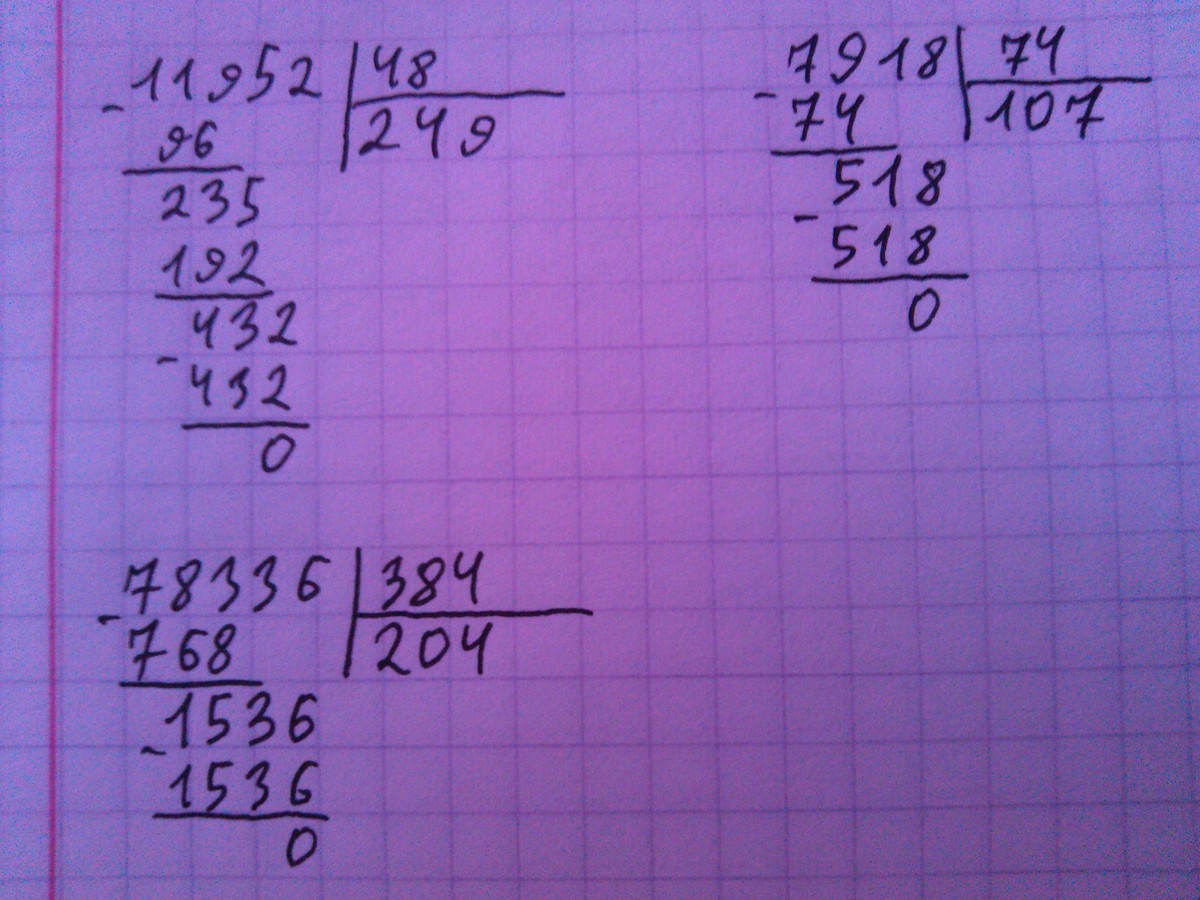 11952 | 48
- 96 | 249
235
192
432
- 432
0
7918 | 74
- 74 | 107
518
- 518
0
78336 | 384
- 768 | 204
1536
- 1536
0